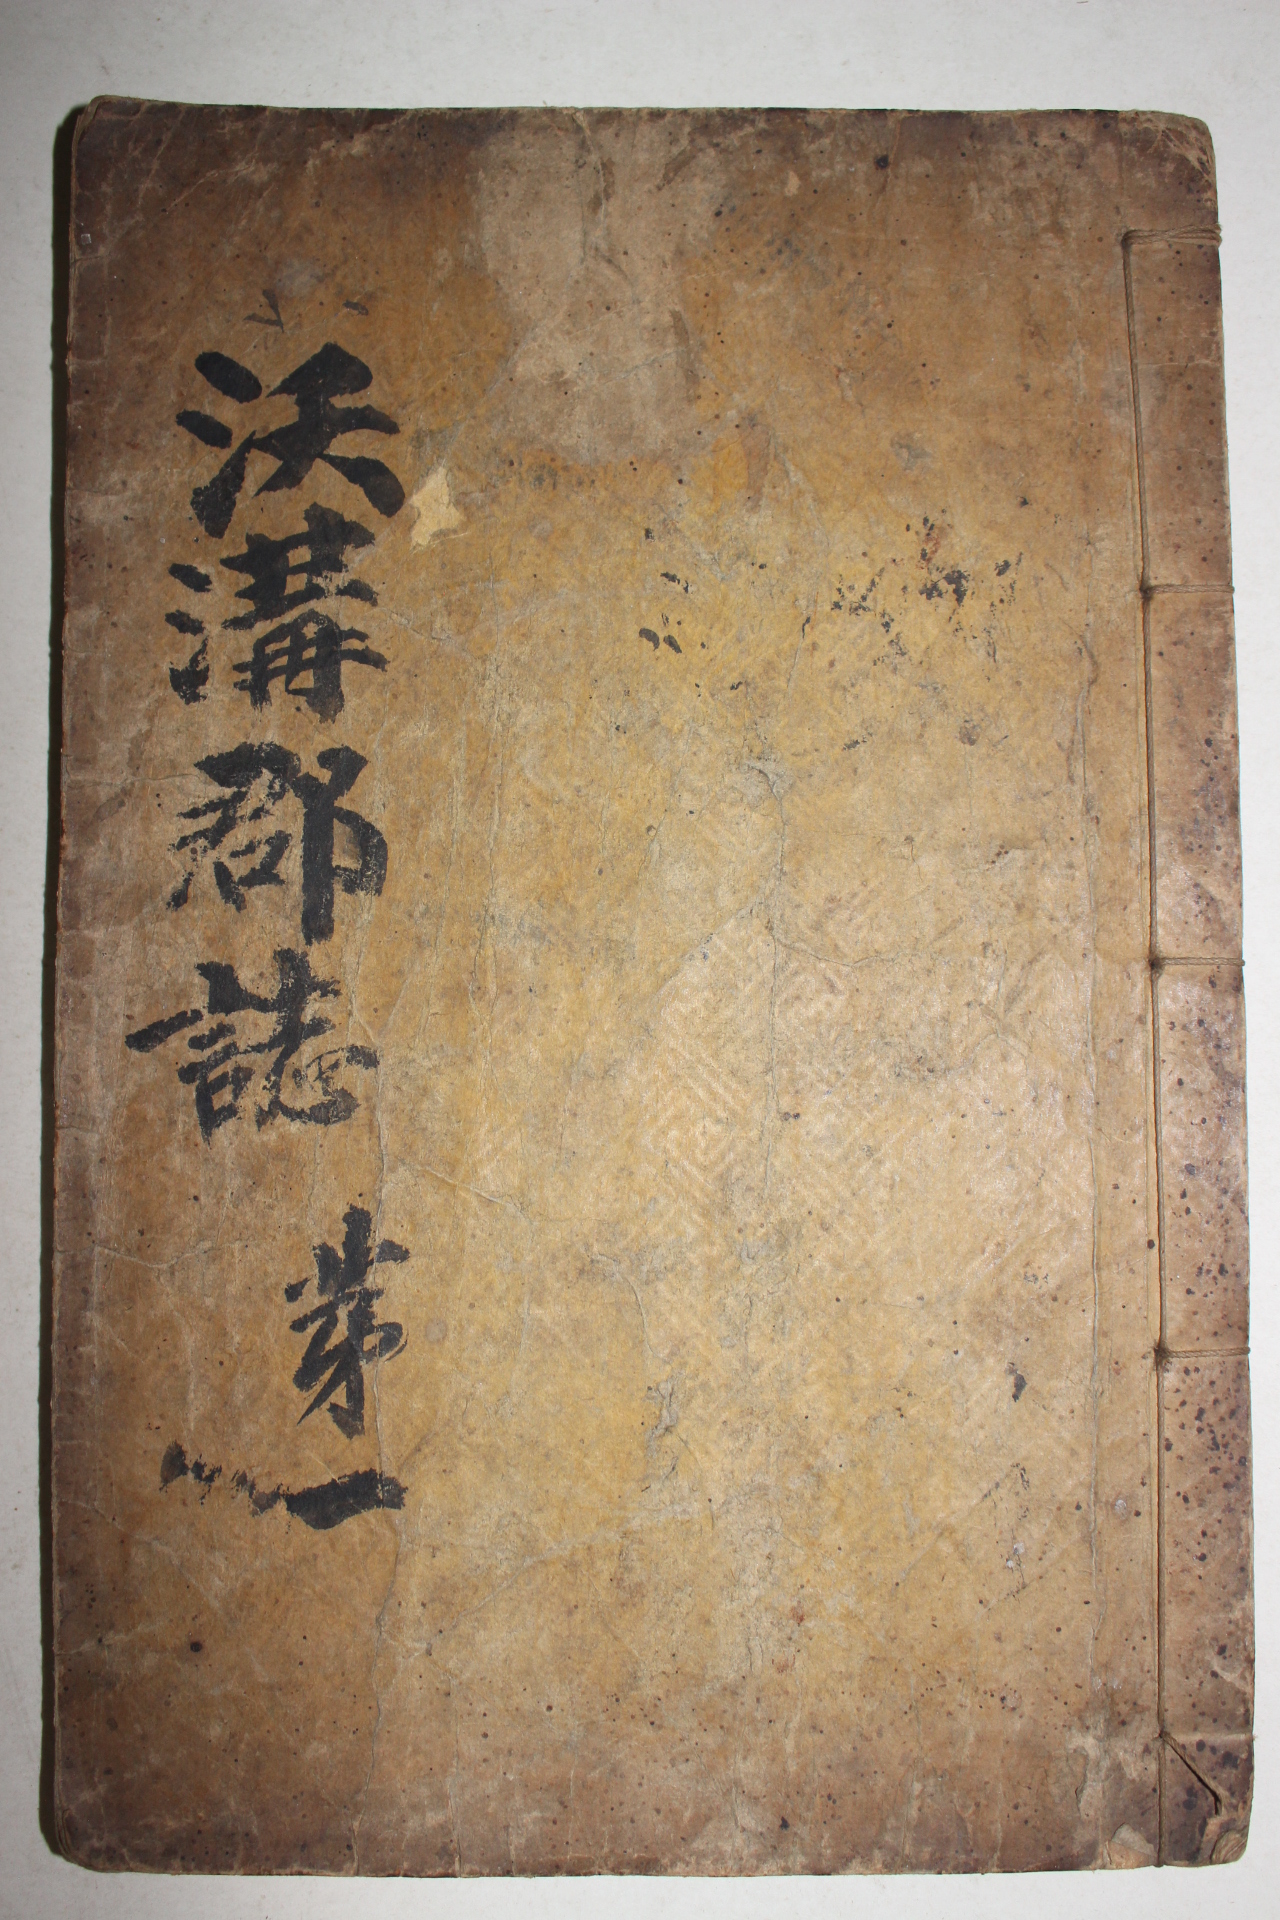 沃溝郡誌 第一